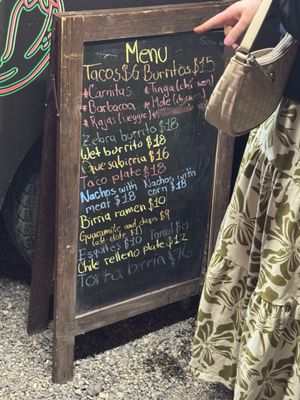 Menu
Tacos $6 Burritos $15
*Carnitas *Tinga (chicken)
*Barbacoa *Mole (chicken)
*Rajas (veggie)
Zebra burrito $18
Wet burrito $18
Quesabirria $16
Taco plate $18
Nachos with meat $18 Nachos with corn $18
Birria ramen $10
Guacamole and chips $9
(add elote $1)
Esquites $10 Tamal $
Chile relleno plate $17
Torta birria $16